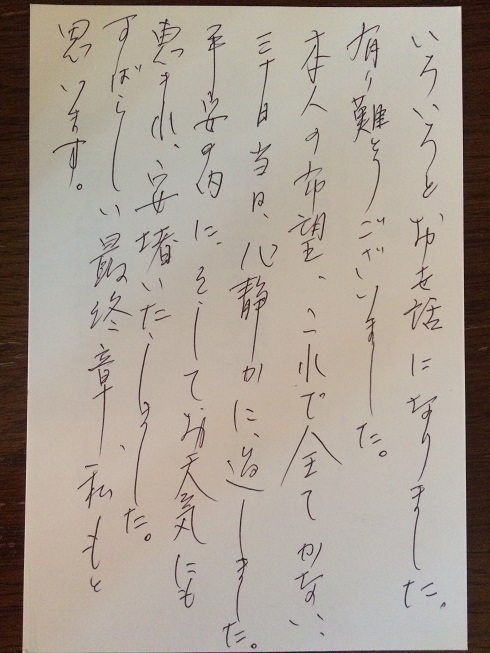 いろいろとお世話になりました。
有り難とうございました。
本人の希望、これで全てかない、
三十日当日、心静かに、過しました。
平安の内に、そしてお天気にも
恵まれ、安堵いたしました。
すばらしい最終章、私もと
思います。